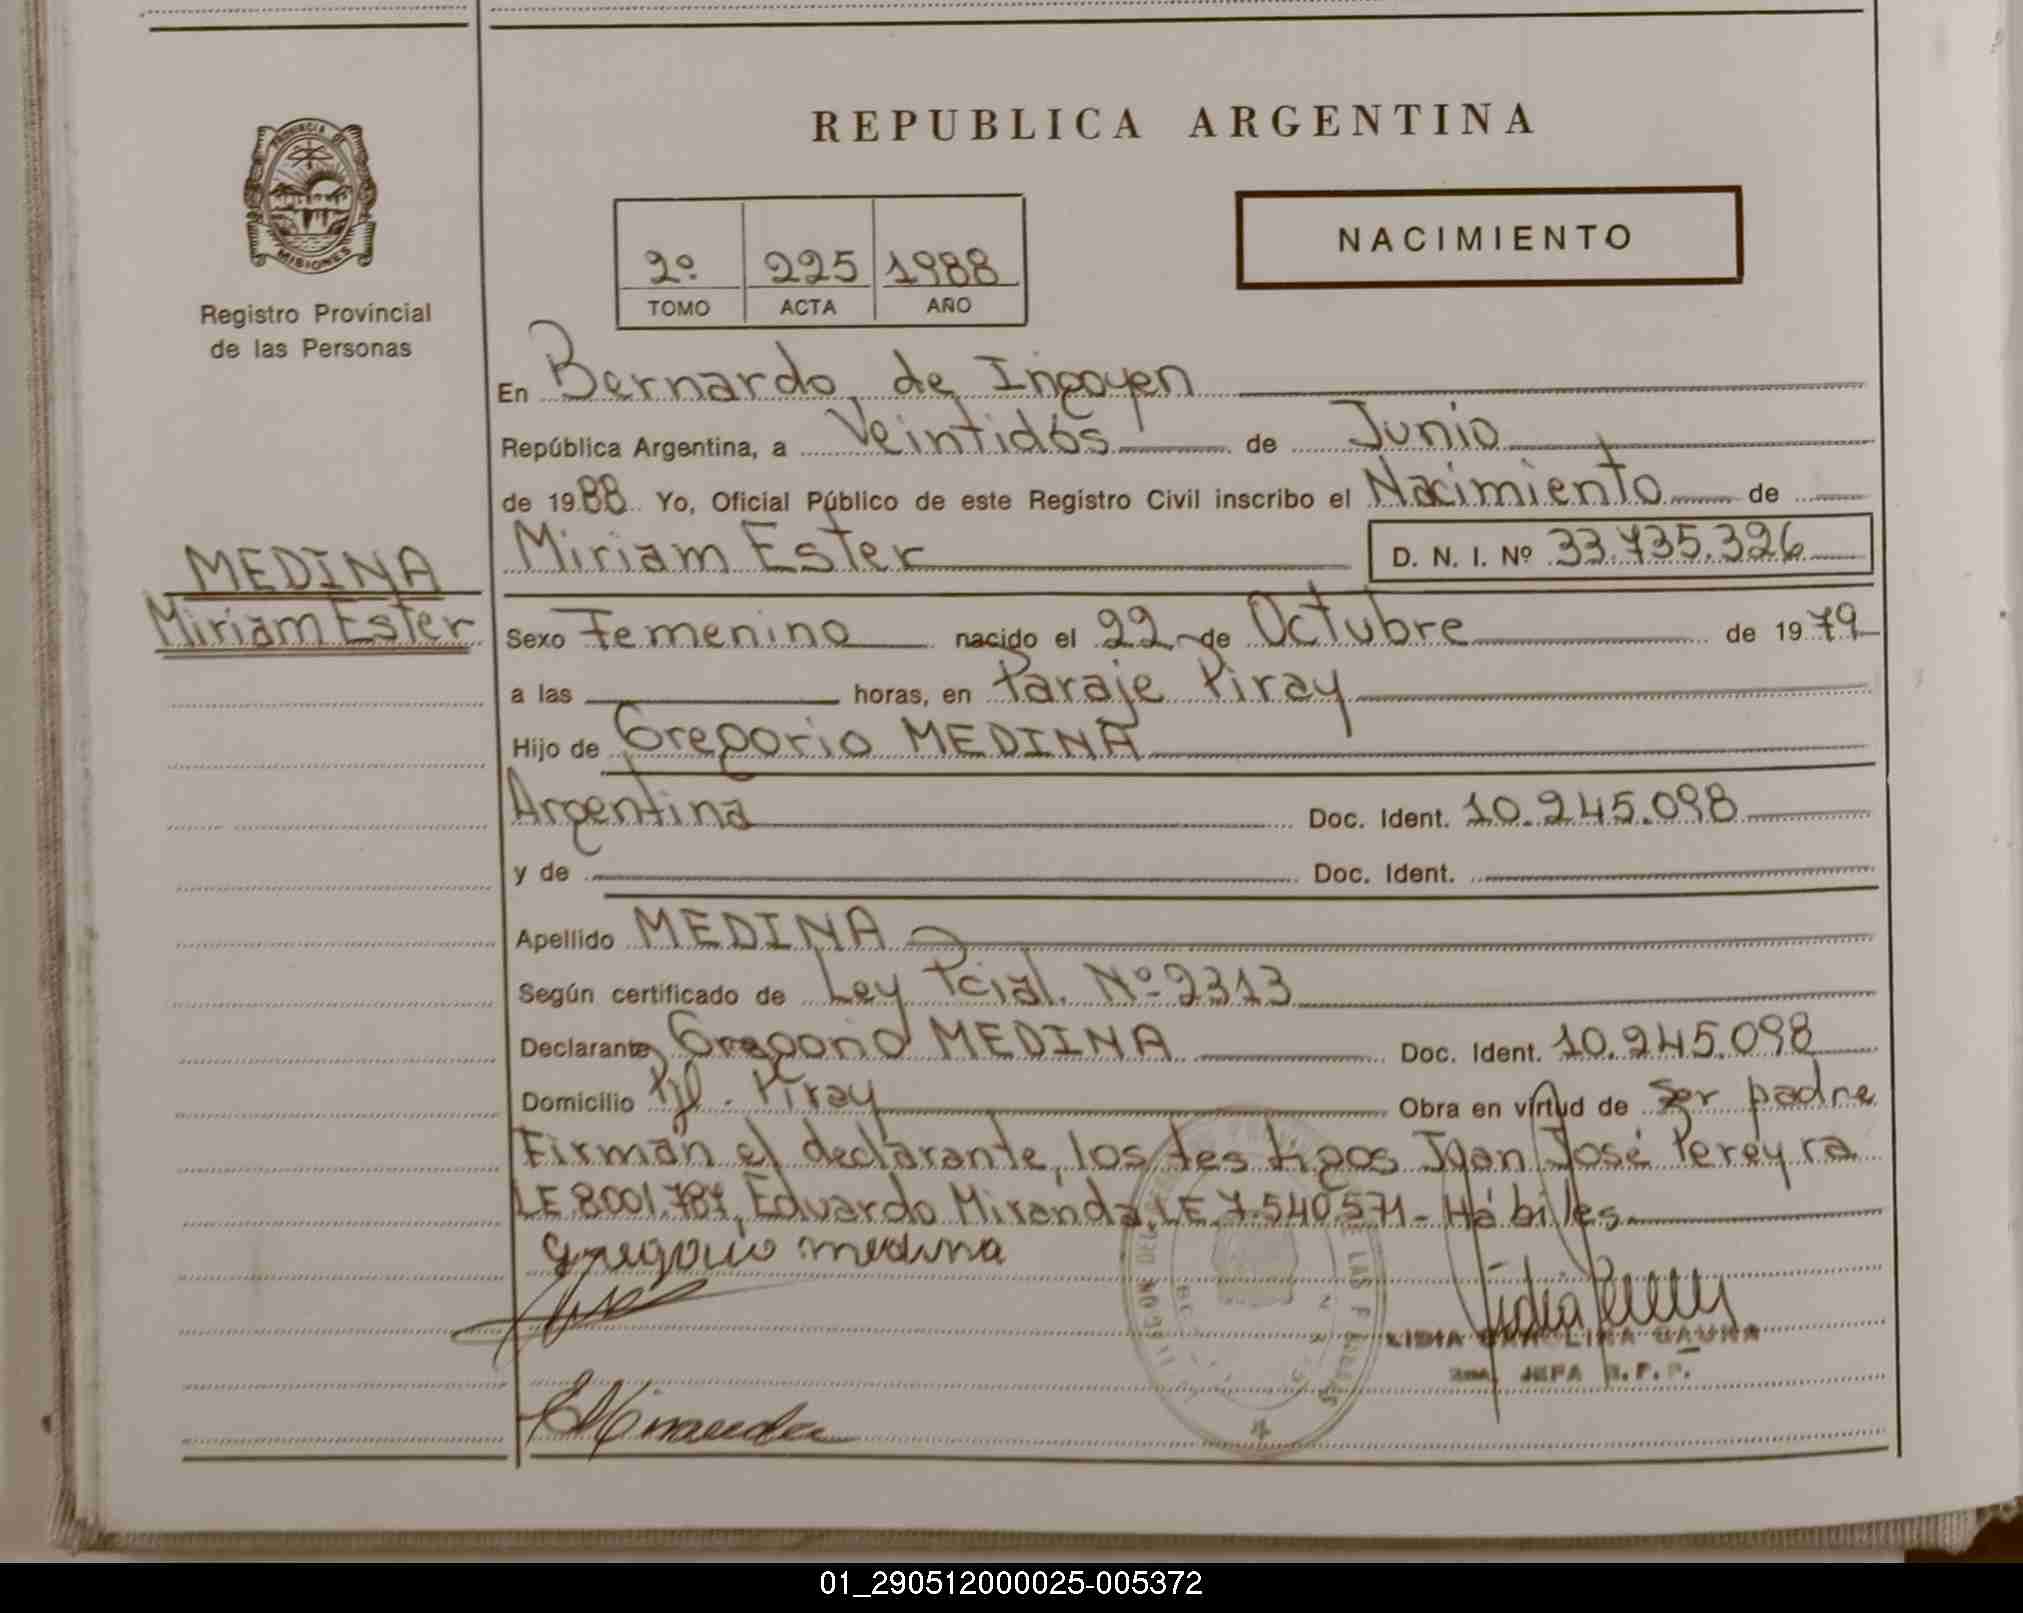 REPUBLICA ARGENTINA
PROVINCIA DE
MISIONES
Registro Provincial
de las Personas
NACIMIENTO
2º 225 1988
TOMO ACTA AÑO
En Bernardo de Irigoyen
República Argentina, a Veintidós de Junio
de 1988 Yo, Oficial Público de este Registro Civil inscribo el Nacimiento de
MEDINA
Miriam Ester
Miriam Ester D. N. I. Nº 33.735.326
Sexo Femenino nacido el 22 de Octubre de 1979
a las horas, en Paraje Piray
Hijo de Gregorio MEDINA
Argentina Doc. Ident. 10.245.098
y de Doc. Ident.
Apellido MEDINA
Según certificado de Ley Pcial. Nº 2313
Declarante Gregorio MEDINA Doc. Ident. 10.245.098
Domicilio Pje. Piray Obra en virtud de ser padre
Firman el declarante, los testigos Juan José Pereyra
LE 8001.787, Eduardo Miranda, LE 7.540.571 - Hábiles
Gregorio medina
EMiranda
LIDIA CAROLINA GAUNA
JEFA R.P.P.
01_290512000025-005372